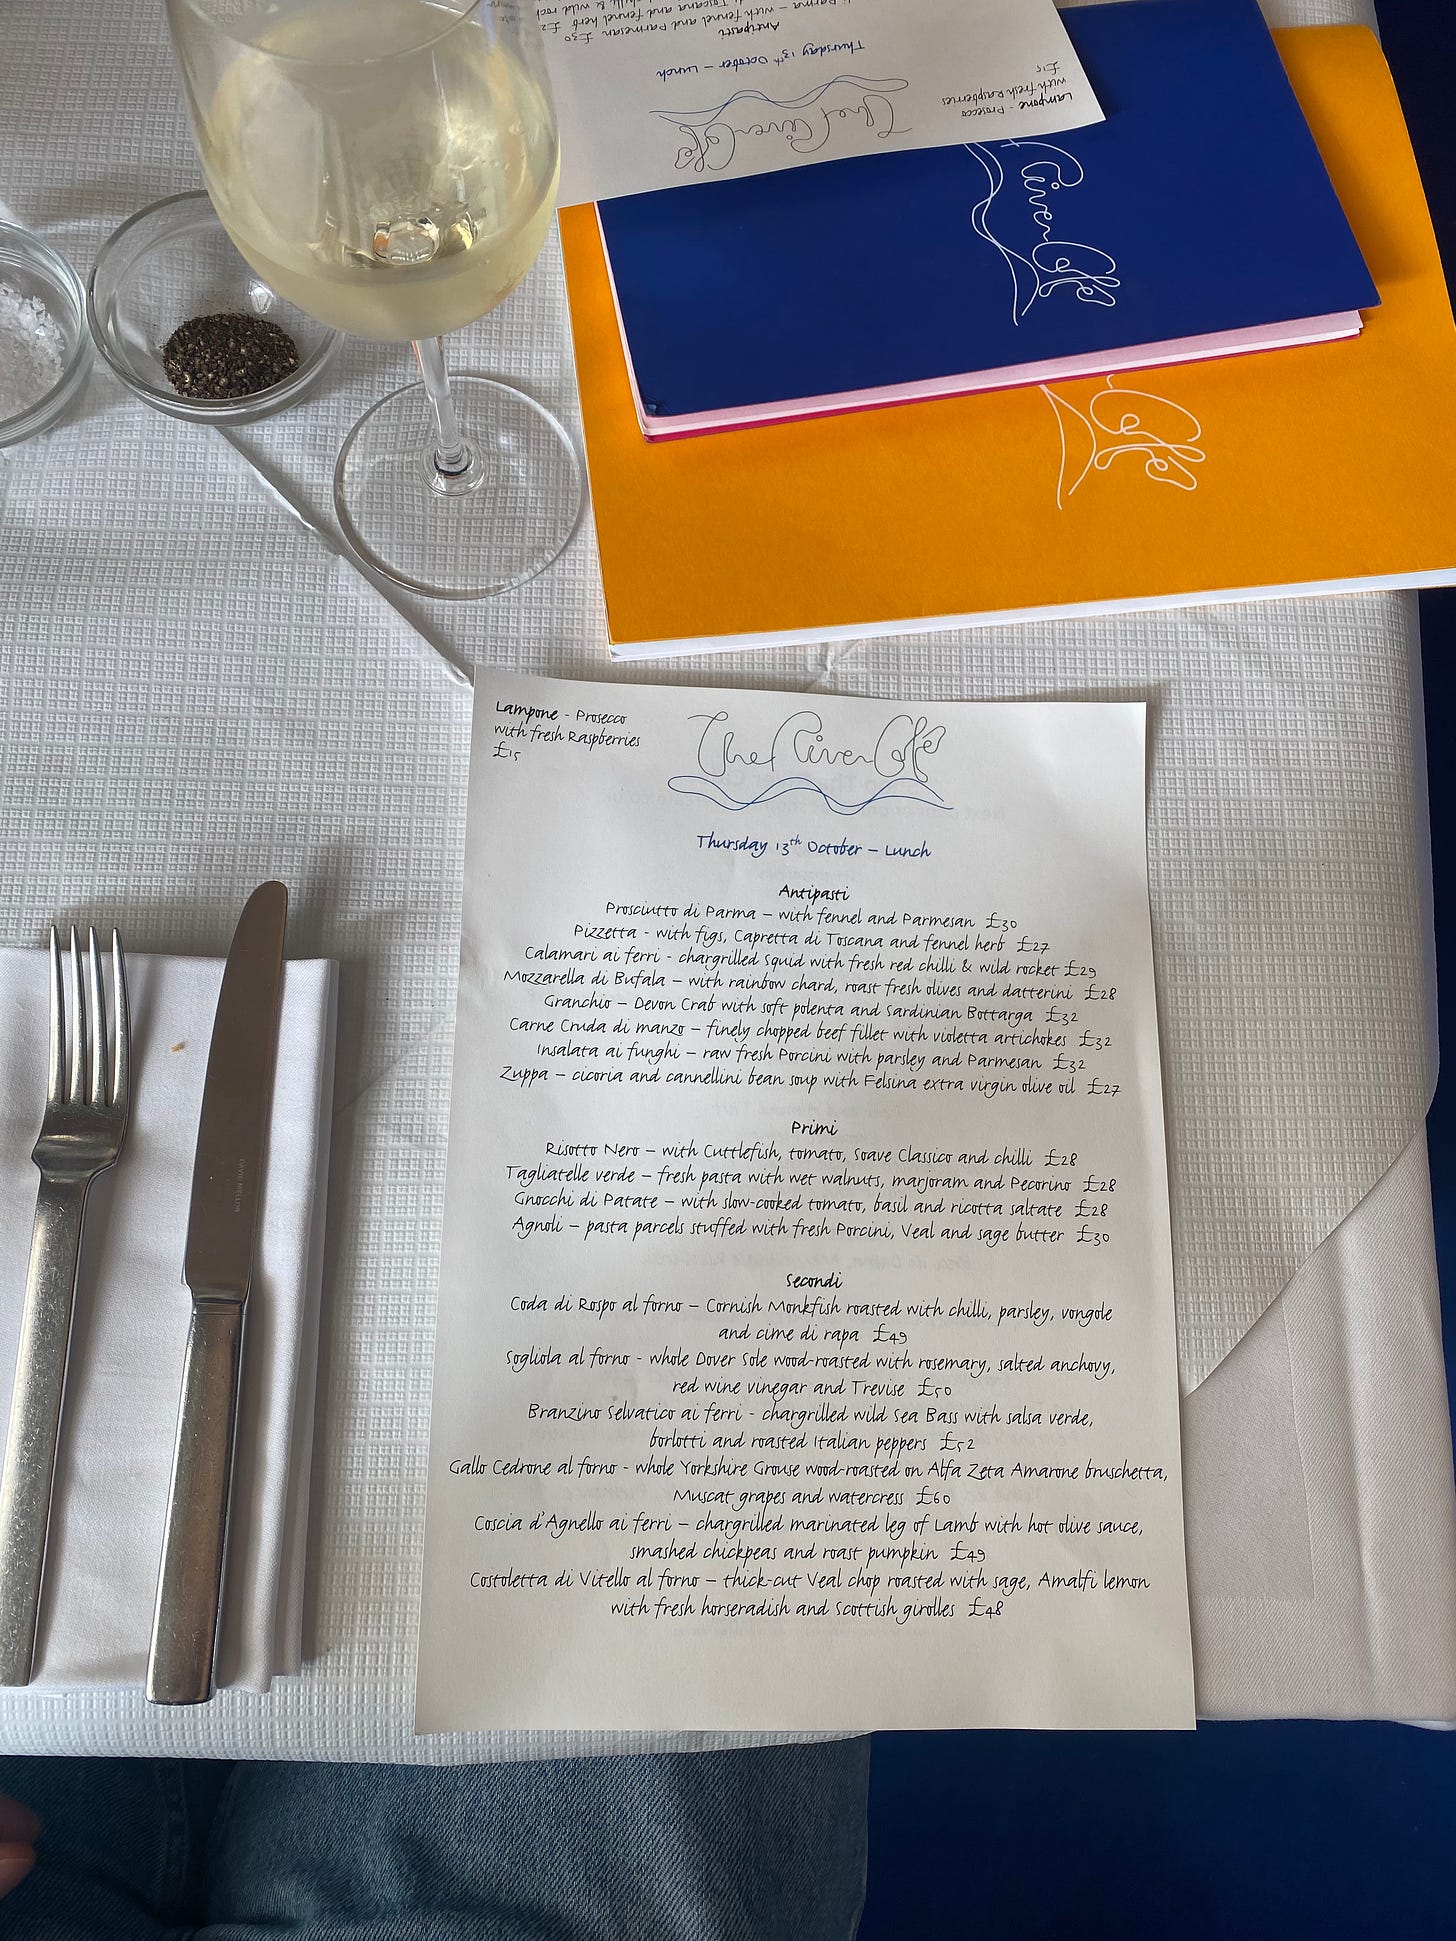 Parma – with fennel and Parmesan £30
Antipasti
Thursday 13th October – Lunch
The River Cafe
Lampone - Prosecco
with fresh Raspberries
£15
River Cafe
Cafe
Lampone - Prosecco
with fresh Raspberries
£15
The River Cafe
Thursday 13th October – Lunch
Antipasti
Prosciutto di Parma – with fennel and Parmesan £30
Pizzetta - with figs, Capretta di Toscana and fennel herb £27
Calamari ai ferri - chargrilled squid with fresh red chilli & wild rocket £29
Mozzarella di Bufala – with rainbow chard, roast fresh olives and datterini £28
Granchio – Devon Crab with soft polenta and Sardinian Bottarga £32
Carne Cruda di manzo – finely chopped beef fillet with violetta artichokes £32
Insalata ai funghi – raw fresh Porcini with parsley and Parmesan £32
Zuppa – cicoria and cannellini bean soup with Felsina extra virgin olive oil £27
Primi
Risotto Nero – with Cuttlefish, tomato, Soave Classico and chilli £28
Tagliatelle verde – fresh pasta with wet walnuts, marjoram and Pecorino £28
Gnocchi di Patate – with slow-cooked tomato, basil and ricotta saltate £28
Agnoli – pasta parcels stuffed with fresh Porcini, Veal and sage butter £30
Secondi
Coda di Rospo al forno – Cornish Monkfish roasted with chilli, parsley, vongole
and cime di rapa £49
Sogliola al forno - whole Dover Sole wood-roasted with rosemary, salted anchovy,
red wine vinegar and Trevise £50
Branzino Selvatico ai ferri - chargrilled wild Sea Bass with salsa verde,
borlotti and roasted Italian peppers £52
Gallo Cedrone al forno - whole Yorkshire Grouse wood-roasted on Alfa Zeta Amarone bruschetta,
Muscat grapes and watercress £60
Coscia d'Agnello ai ferri – chargrilled marinated leg of Lamb with hot olive sauce,
smashed chickpeas and roast pumpkin £49
Costoletta di Vitello al forno – thick-cut Veal chop roasted with sage, Amalfi lemon
with fresh horseradish and Scottish girolles £48
DAVID MELLOR